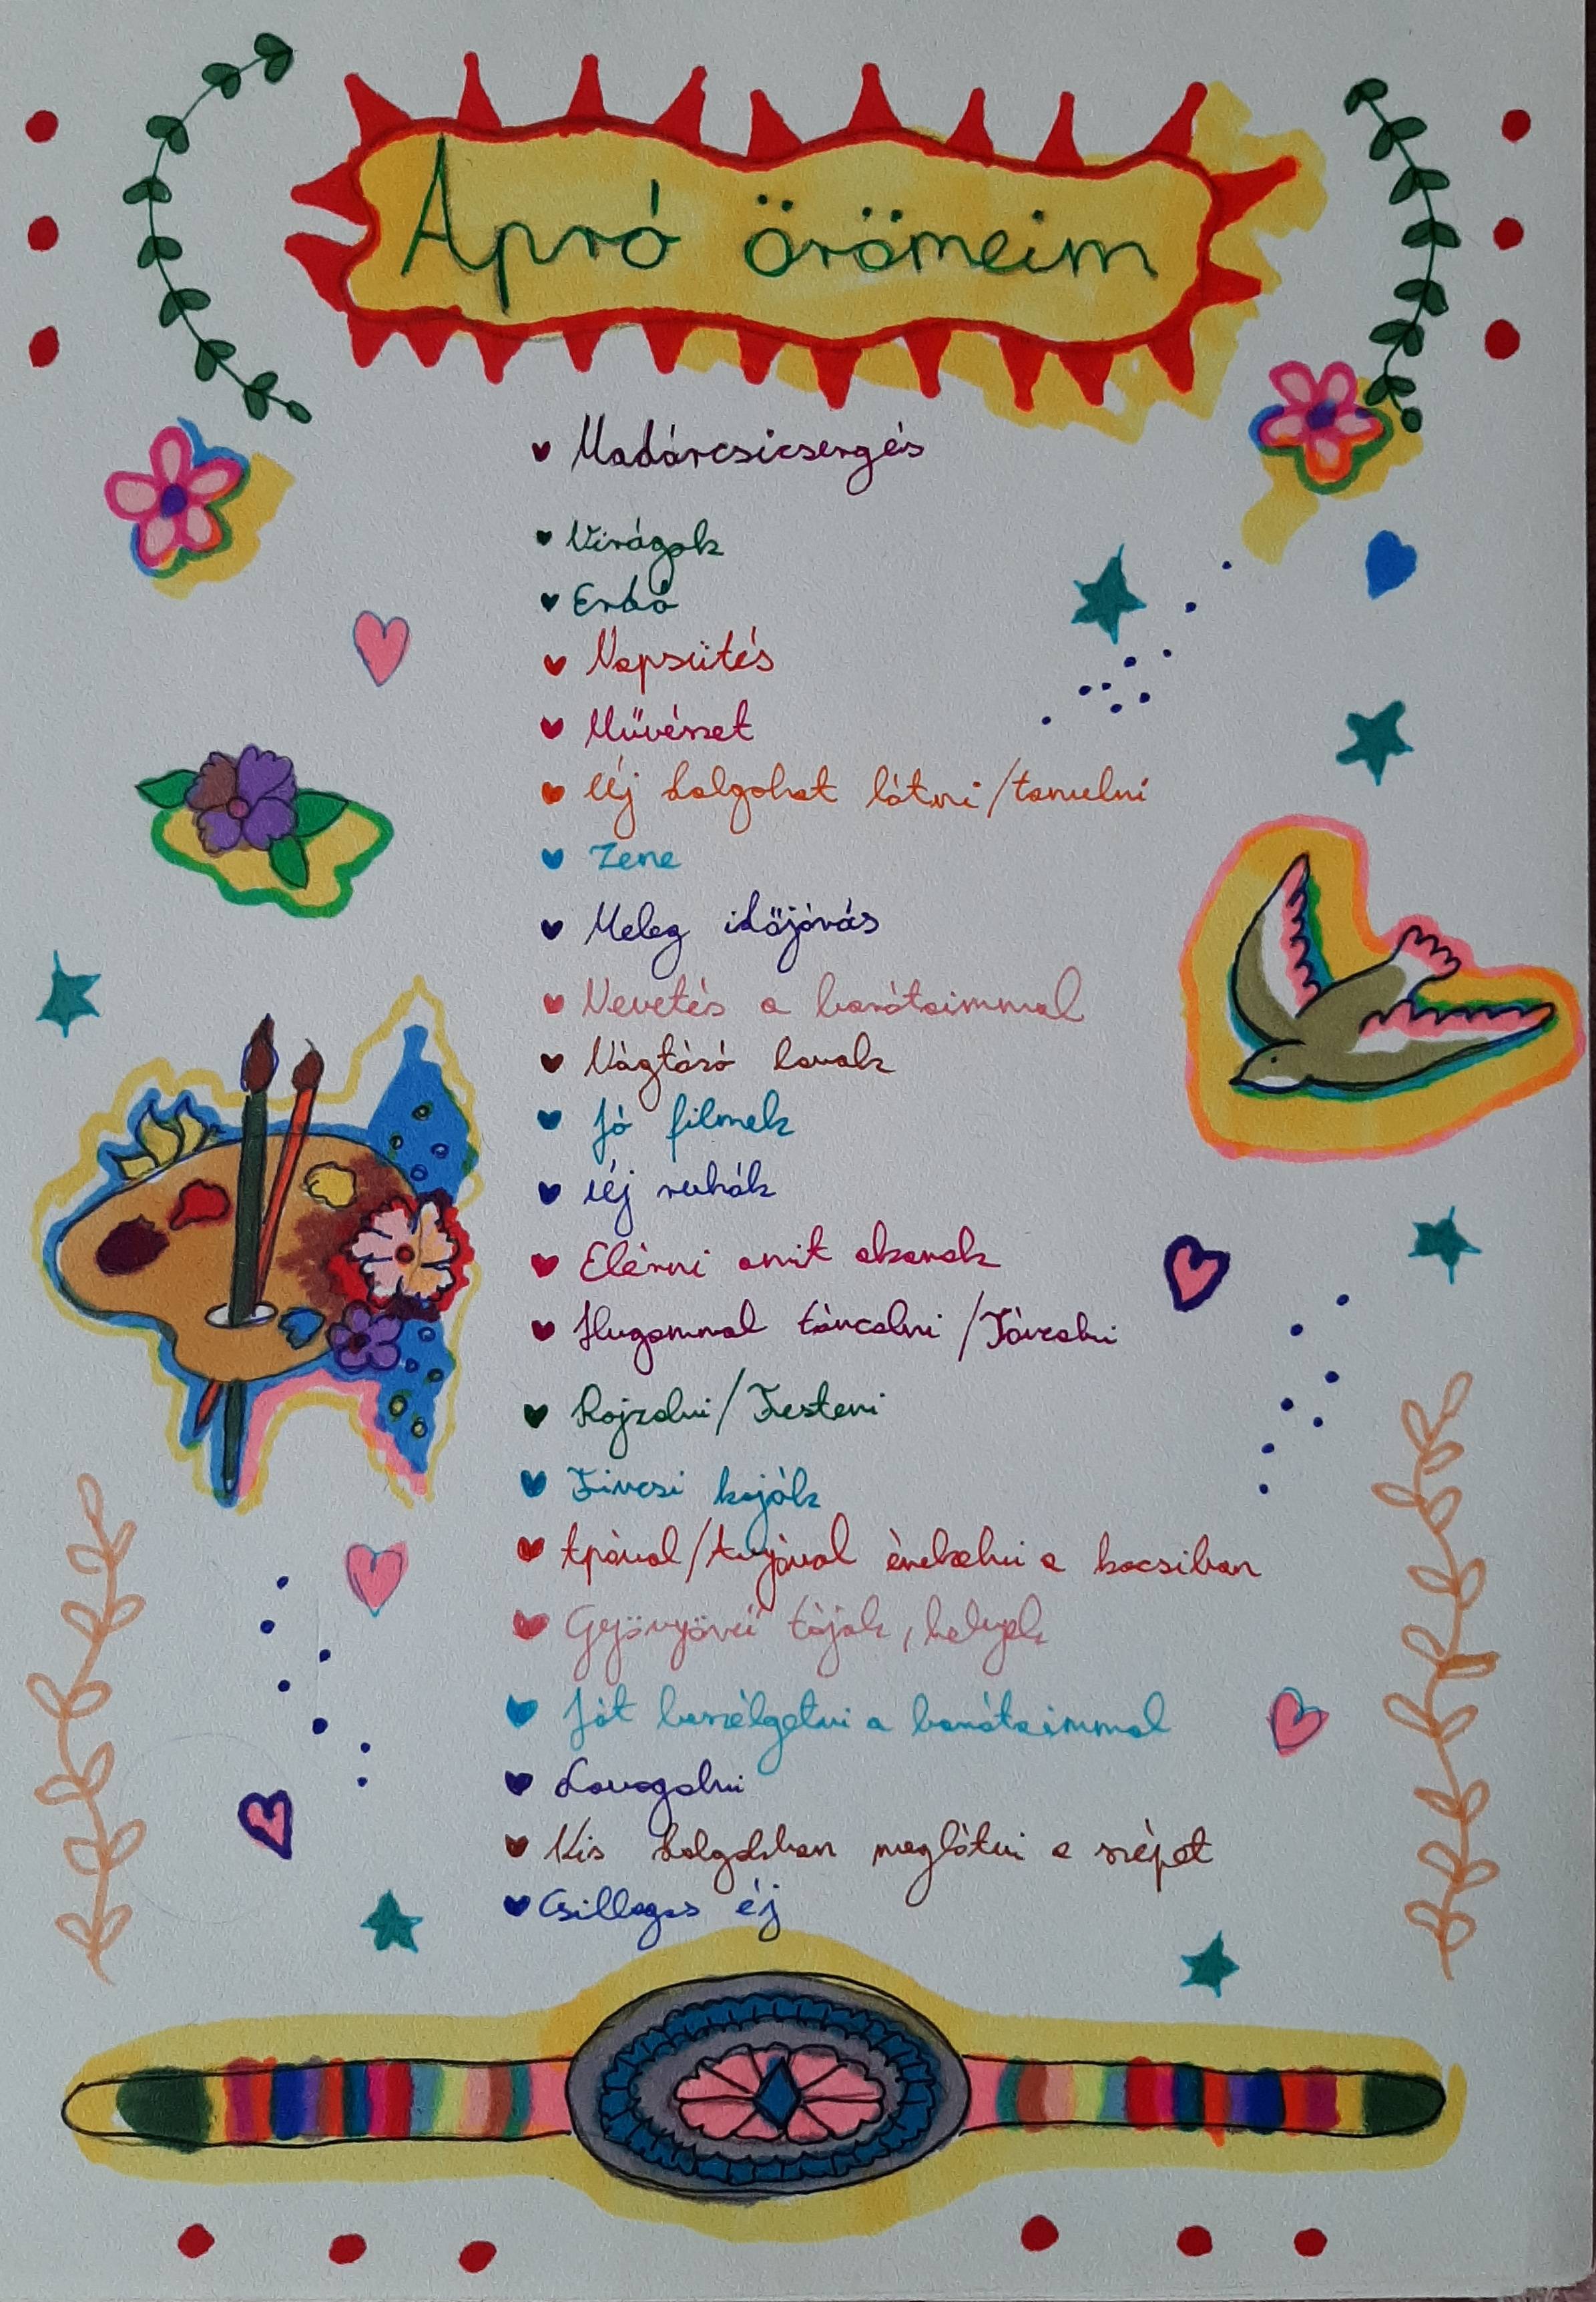 Apró örömeim
Madárcsicsergés
Virágok
Erdő
Napsütés
Művészet
Új dolgokat látni/tanulni
Zene
Meleg időjárás
Nevetés a barátaimmal
Vágtázó lovak
Jó filmek
Új ruhák
Elérni amit akarok
Hugommal táncolni/Társalni
Rajzolni/Festeni
Fincsi kaják
Apával/Anyával énekelni a kocsiban
Gyönyörű tájak, helyek
Jót beszélgetni a barátaimmal
Lovagolni
Kis dolgokban meglátni a szépet
Csillagos éj